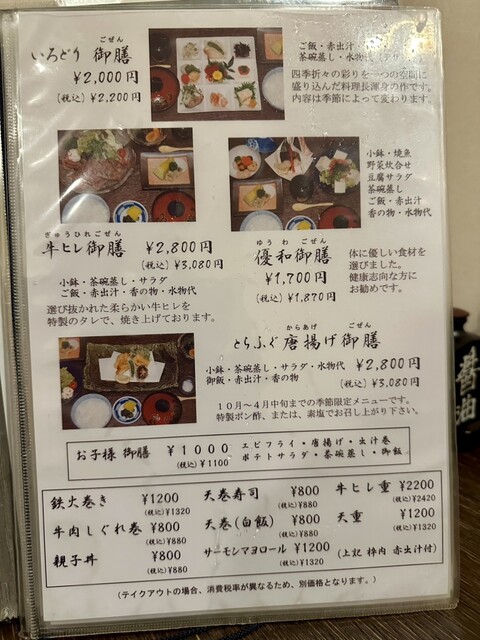 ごぜん
いろどり 御膳
¥2,000円
(税込) ¥2,200円
ご飯・赤出汁
茶碗蒸し・水物代
四季折々の彩りを一つの空間に
盛り込んだ料理長渾身の作です。
内容は季節によって変わります。
小鉢・焼魚
野菜炊合せ
豆腐サラダ
茶碗蒸し
ご飯・赤出汁
香の物・水物代
ぎゅうひれごぜん
牛ヒレ御膳 ¥2,800円
(税込) ¥3,080円
小鉢・茶碗蒸し・サラダ
ご飯・赤出汁・香の物・水物代
選び抜かれた柔らかい牛ヒレを
特製のタレで、焼き上げております。
ゆうわ ごぜん
優和御膳
¥1,700円
(税込) ¥1,870円
体に優しい食材を
選びました。
健康志向な方に
お勧めです。
からあげ ごぜん
とらふぐ唐揚げ御膳
小鉢・茶碗蒸し・サラダ・水物代
御飯・赤出汁・香の物
¥2,800円
(税込) ¥3,080円
10月～4月中旬までの季節限定メニューです。
特製ポン酢、または、素塩でお召し上がり下さい。
お子様 御膳 ¥1000
(税込) ¥1100
エビフライ・唐揚げ・出汁巻
ポテトサラダ・茶碗蒸し・御飯
鉄火巻き ¥1200
(税込) ¥1320
天巻寿司 ¥800
(税込) ¥880
牛ヒレ重 ¥2200
(税込) ¥2420
牛肉しぐれ巻 ¥800
(税込) ¥880
天巻(白飯) ¥800
(税込) ¥880
天重 ¥1200
(税込) ¥1320
親子丼 ¥800
(税込) ¥880
サーモンマヨロール ¥1200
(税込) ¥1320
(上記 枠内 赤出汁付)
(テイクアウトの場合、消費税率が異なるため、別価格となります。)
醤油